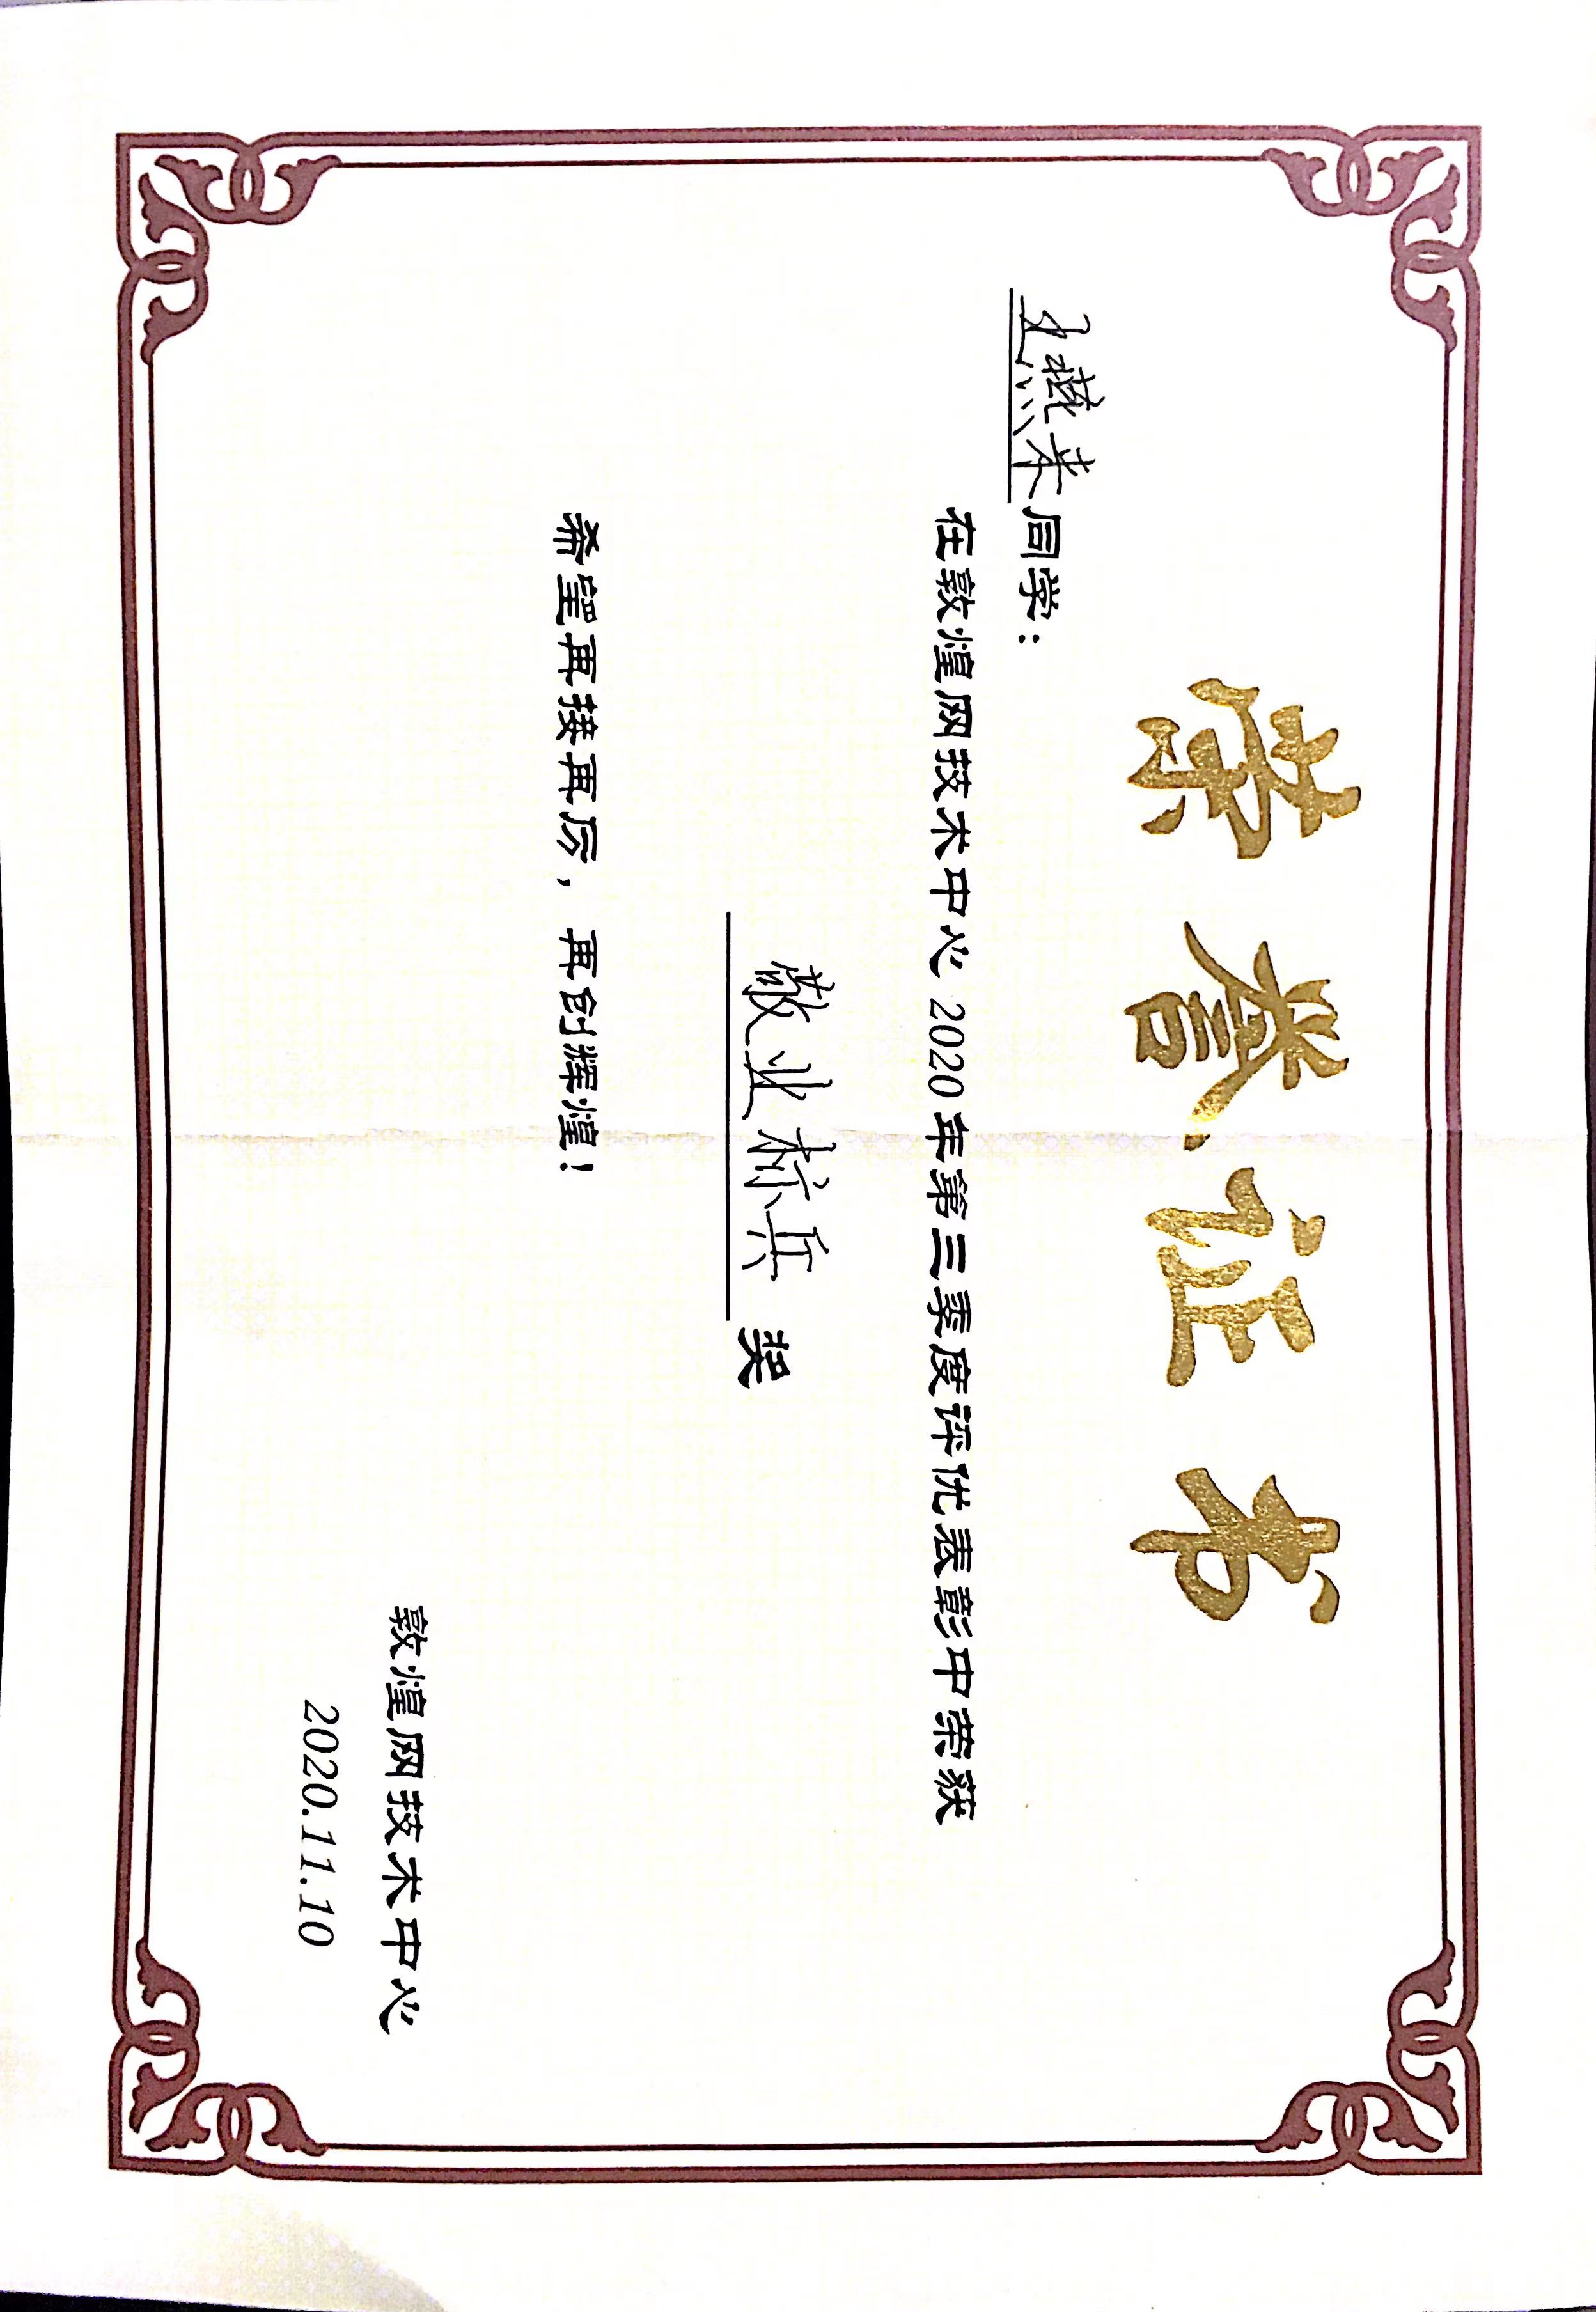 荣誉证书
王燕来同学：
在敦煌网技术中心 2020 年第三季度评优表彰中荣获
敬业标兵 奖
希望再接再厉，再创辉煌！
敦煌网技术中心
2020.11.10